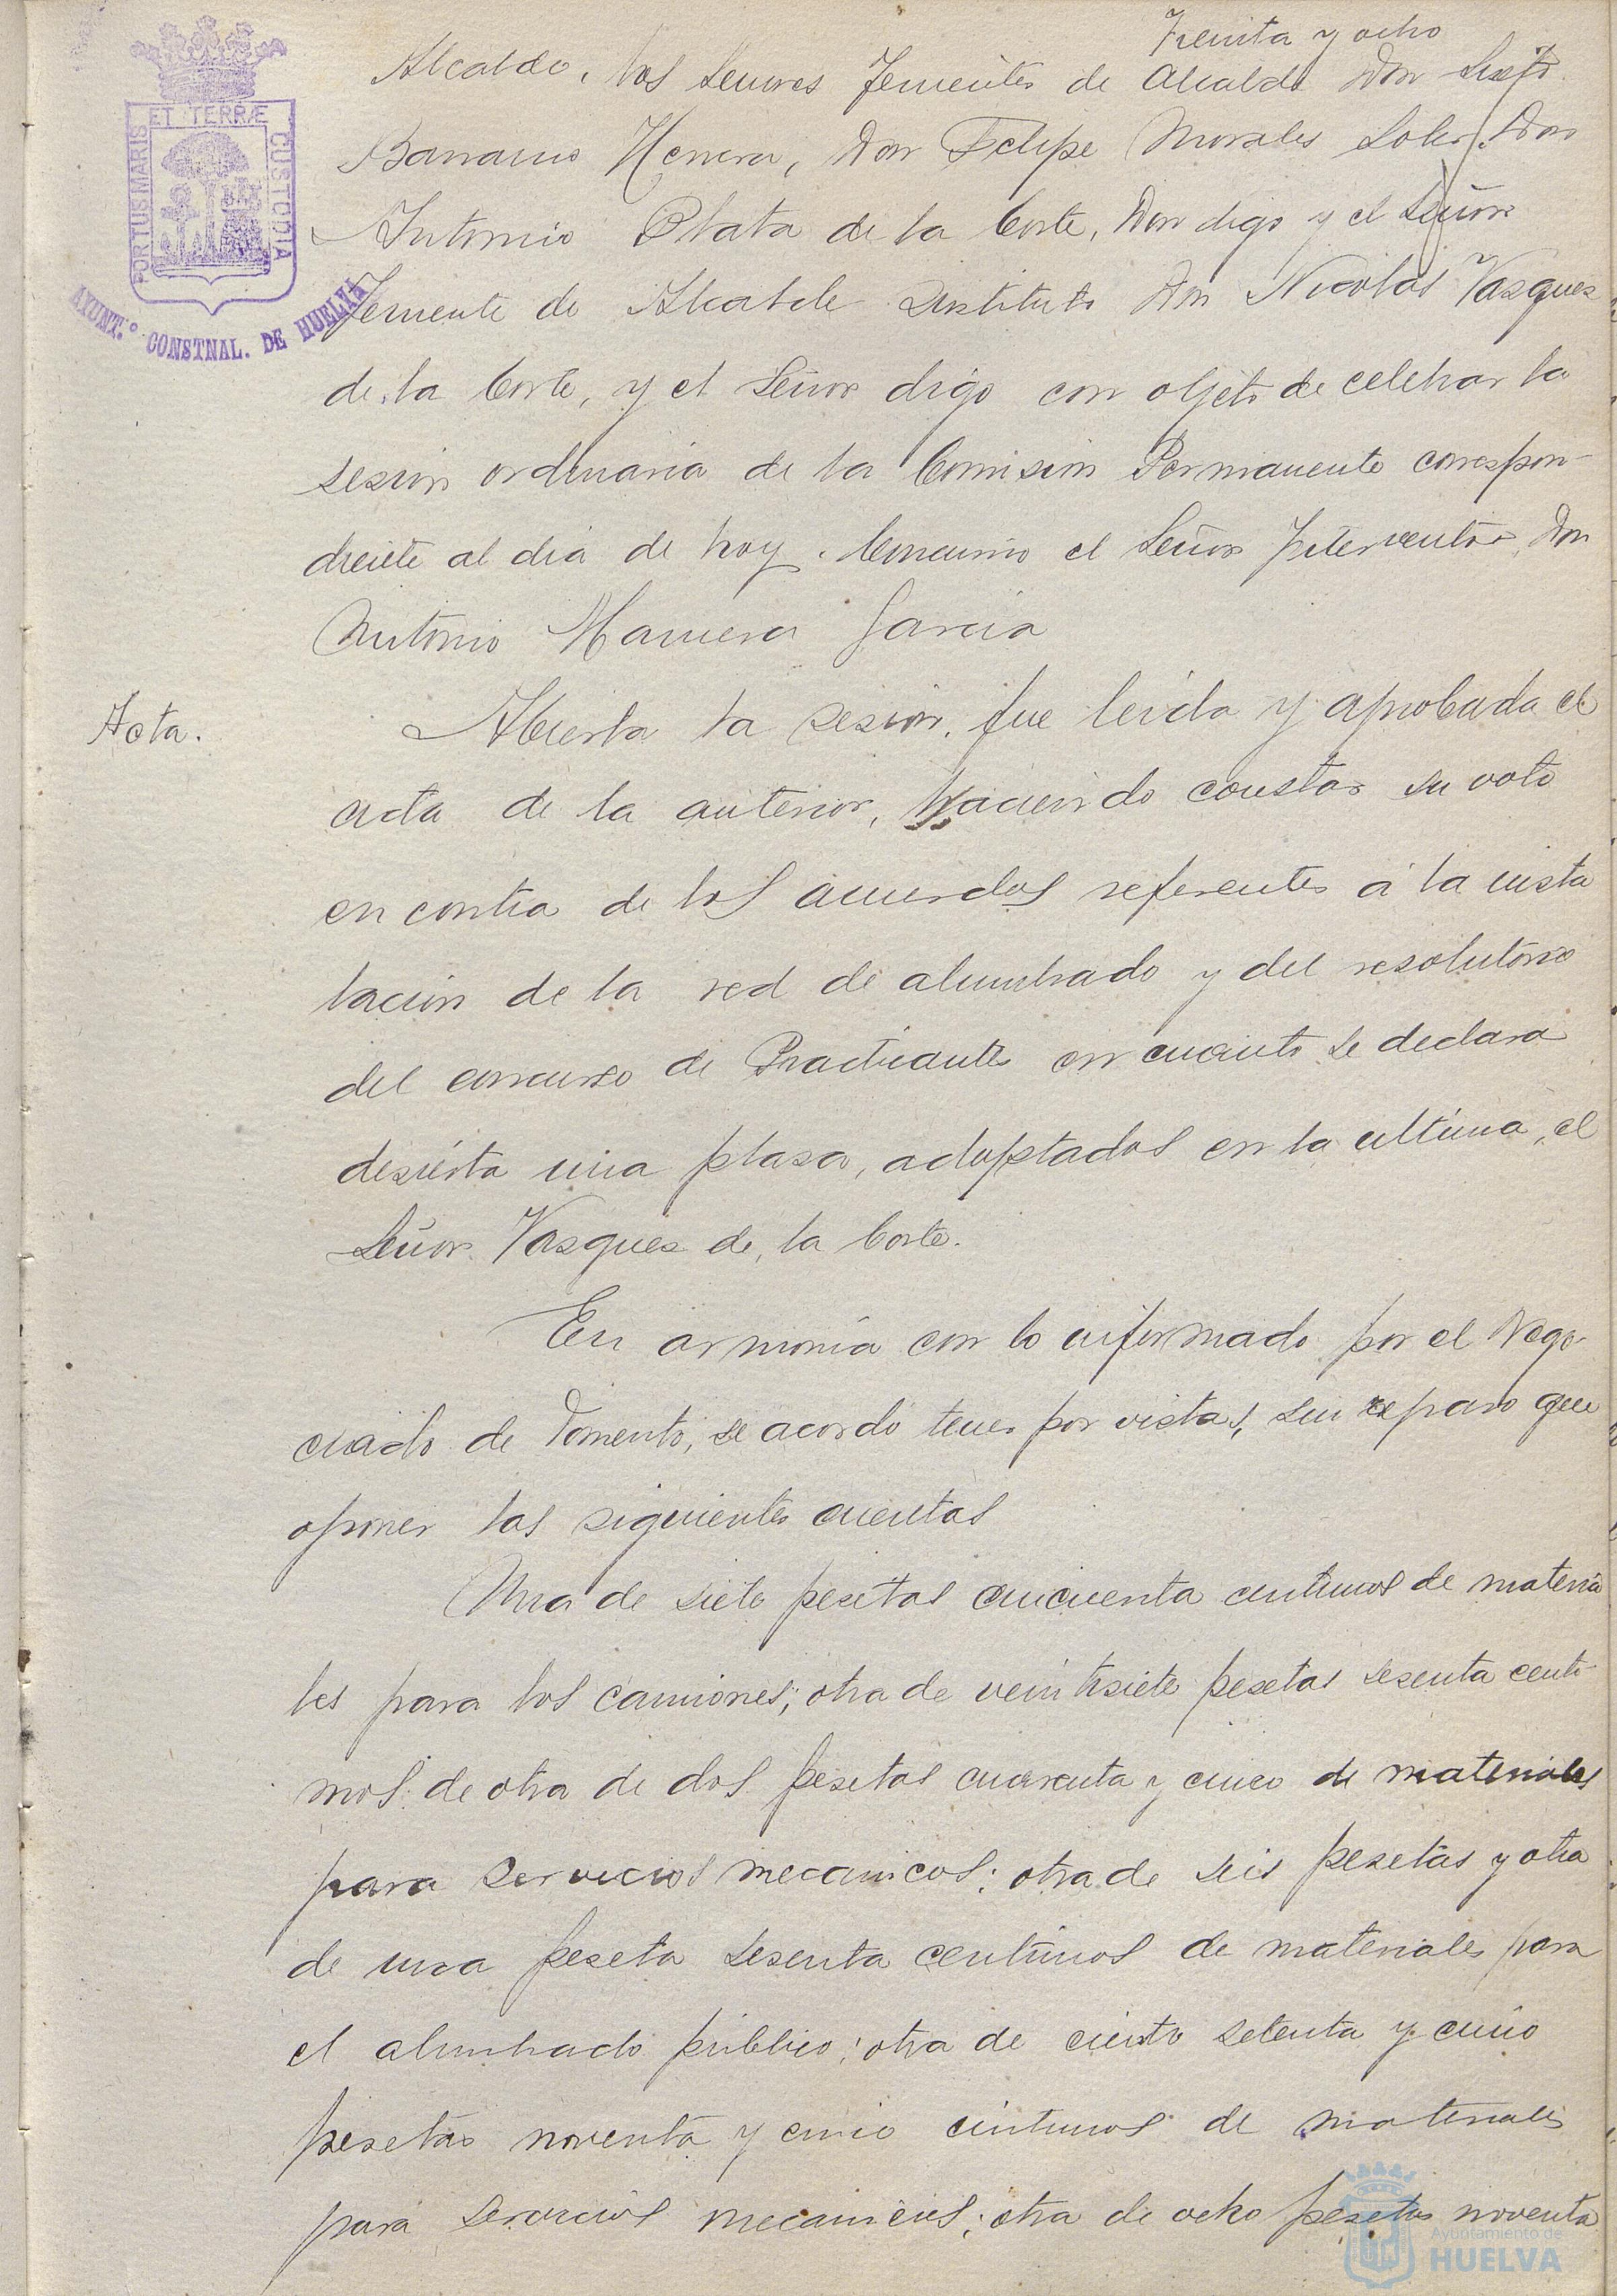 Treinta y ocho
PORTUS MARIS ET TERRÆ CUSTODIA
AYUNT.º CONSTNAL. DE HUELVA
Alcalde, los Señores Tenientes de Alcalde Don Sixto
Barranco Herrera, Don Felipe Morales Soler, Don
Antonio Plata de la Corte, Don digo y el Señor
Teniente de Alcalde sustituto Don Nicolas Vasquez
de la Corte, y el Señor digo con objeto de celebrar la
sesion ordinaria de la Comision Permanente correspon-
diente al dia de hoy. Concurrio el Señor Interventor, Don
Antonio Manuera Garcia
Acta.
Abierta la sesion, fue leida y aprobada el
acta de la anterior, haciendo constar su voto
en contra de los acuerdos referentes á la insta
lacion de la red de alumbrado y del resolutorio
del concurso de Practicantes en cuanto se declara
desierta una plasa, adoptados en la ultima, el
Señor Vasquez de la Corte.
En armonia con lo informado por el Nego-
ciado de Fomento, se acordo tener por vistas, sin reparo que
oponer las siguientes cuentas
Una de siete pesetas cincuenta centimos de materia
les para los camiones; otra de veintisiete pesetas sesenta centi-
mos de otra de dos pesetas cuarenta y cinco de materiales
para servicios mecanicos; otra de seis pesetas y otra
de una peseta sesenta centimos de materiales para
el alumbrado publico; otra de ciento setenta y cinco
pesetas noventa y cinco centimos de materiales
para servicios mecanicos; otra de ocho pesetas noventa
Ayuntamiento de
HUELVA